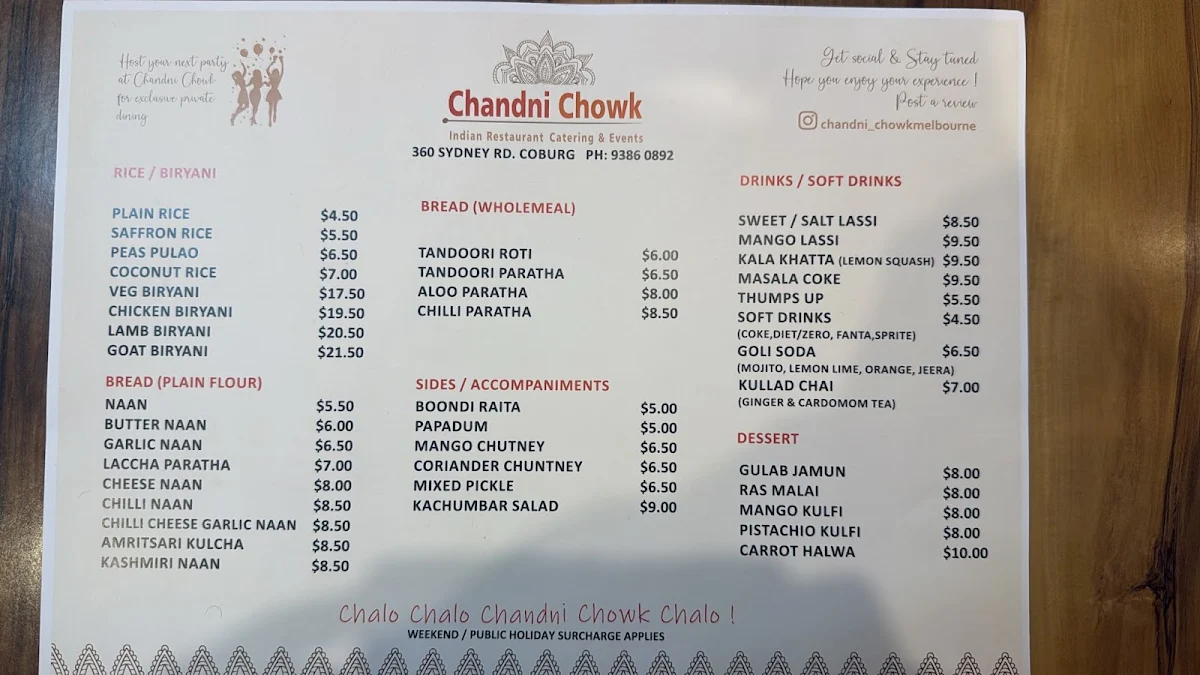 Host your next party
at Chandni Chowk
for exclusive private
dining
Chandni Chowk
Indian Restaurant Catering & Events
360 SYDNEY RD. COBURG PH: 9386 0892
Get social & Stay tuned
Hope you enjoy your experience !
Post a review
chandni_chowkmelbourne
RICE / BIRYANI
PLAIN RICE $4.50
SAFFRON RICE $5.50
PEAS PULAO $6.50
COCONUT RICE $7.00
VEG BIRYANI $17.50
CHICKEN BIRYANI $19.50
LAMB BIRYANI $20.50
GOAT BIRYANI $21.50
BREAD (PLAIN FLOUR)
NAAN $5.50
BUTTER NAAN $6.00
GARLIC NAAN $6.50
LACCHA PARATHA $7.00
CHEESE NAAN $8.00
CHILLI NAAN $8.50
CHILLI CHEESE GARLIC NAAN $8.50
AMRITSARI KULCHA $8.50
KASHMIRI NAAN $8.50
BREAD (WHOLEMEAL)
TANDOORI ROTI $6.00
TANDOORI PARATHA $6.50
ALOO PARATHA $8.00
CHILLI PARATHA $8.50
SIDES / ACCOMPANIMENTS
BOONDI RAITA $5.00
PAPADUM $5.00
MANGO CHUTNEY $6.50
CORIANDER CHUNTNEY $6.50
MIXED PICKLE $6.50
KACHUMBAR SALAD $9.00
DRINKS / SOFT DRINKS
SWEET / SALT LASSI $8.50
MANGO LASSI $9.50
KALA KHATTA (LEMON SQUASH) $9.50
MASALA COKE $9.50
THUMPS UP $5.50
SOFT DRINKS $4.50
(COKE,DIET/ZERO, FANTA,SPRITE)
GOLI SODA $6.50
(MOJITO, LEMON LIME, ORANGE, JEERA)
KULLAD CHAI $7.00
(GINGER & CARDOMOM TEA)
DESSERT
GULAB JAMUN $8.00
RAS MALAI $8.00
MANGO KULFI $8.00
PISTACHIO KULFI $8.00
CARROT HALWA $10.00
Chalo Chalo Chandni Chowk Chalo !
WEEKEND / PUBLIC HOLIDAY SURCHARGE APPLIES